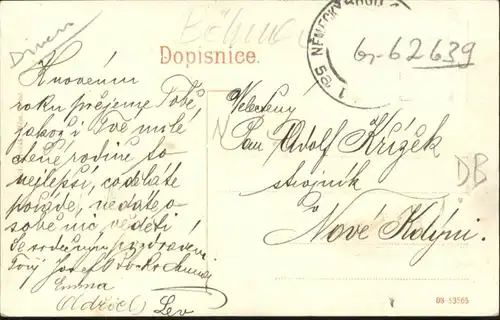 Dopisnice.
NĚMECKÝ BROD
1
gr-62639
K novému
roku přejeme Tobě,
jakož i Tvé milé
ctěné rodině to
nejlepší, co děláte
pořáde, nedáte o
sobě nic věděti
Se srdečným pozdravem
Tvůj Josef
Emma
Lev
Veletěný
Pan Adolf Křížek
strojník
v
Nové Kdýni.
DB
09 53565